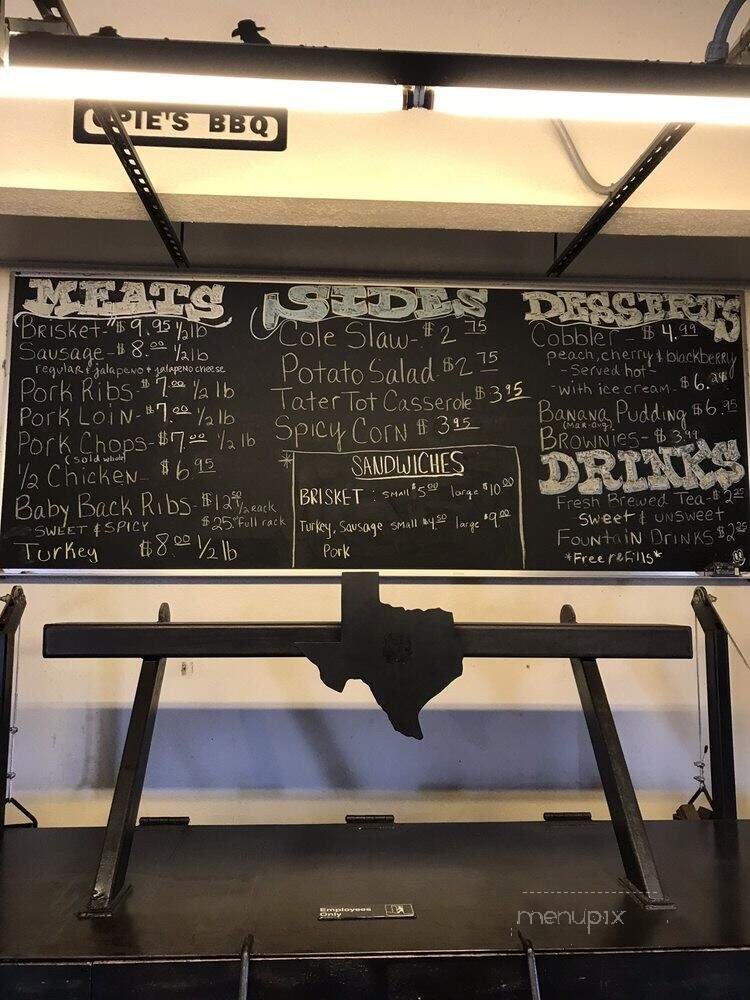 OPIE'S BBQ
MEATS
Brisket - $9.95 1/2 lb
Sausage - $8.00 1/2 lb
regular & jalapeno & jalapeno cheese
Pork Ribs - $7.00 1/2 lb
Pork Loin - $7.00 1/2 lb
Pork Chops - $7.00 1/2 lb
(sold whole)
1/2 Chicken - $6.95
Baby Back Ribs - $12.50 1/2 rack
SWEET & SPICY $25.00 full rack
Turkey $8.00 1/2 lb
SIDES
Cole Slaw - $2.75
Potato Salad $2.75
Tater Tot Casserole $3.95
Spicy Corn $3.95
* SANDWICHES
BRISKET : small $5.00 large $10.00
Turkey, Sausage small $4.50 large $9.00
Pork
DESSERTS
Cobbler - $4.99
peach, cherry & blackberry
- Served hot -
- with ice cream - $6.24
Banana Pudding $6.95
Brownies - $3.99
DRINKS
Fresh Brewed Tea - $2.25
sweet & unsweet
Fountain Drinks $2.25
*Free refills*
Employees
Only
menupix